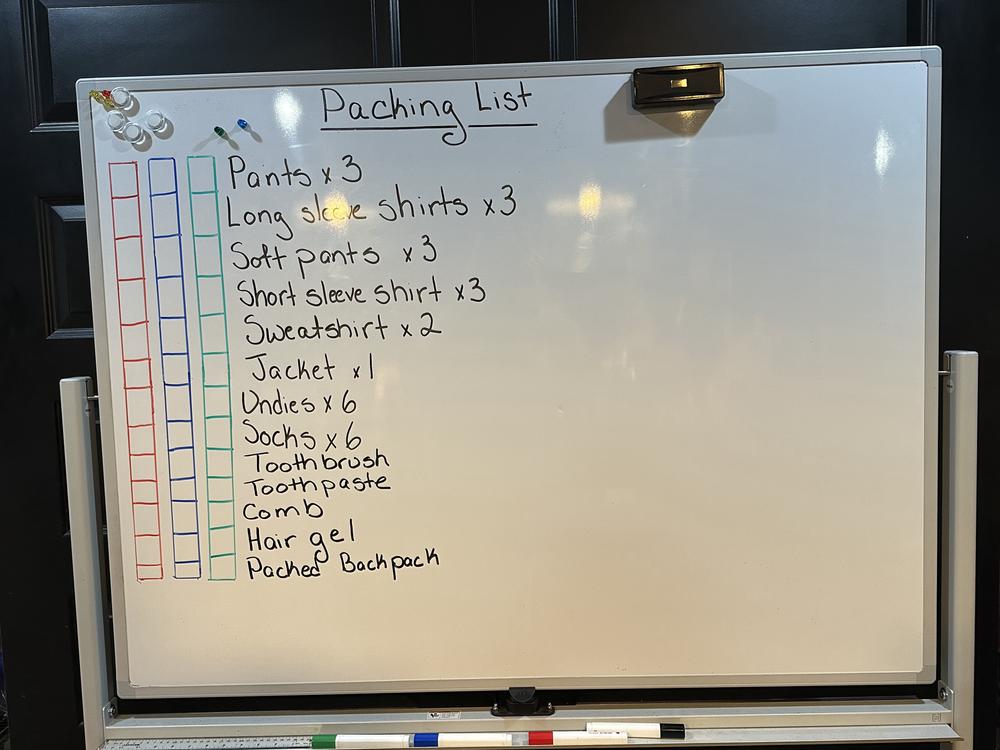 Packing List
Pants x 3
Long sleeve shirts x3
Soft pants x 3
Short sleeve shirt x3
Sweatshirt x 2
Jacket x 1
Undies x 6
Socks x 6
Toothbrush
Toothpaste
Comb
Hair gel
Packed Backpack